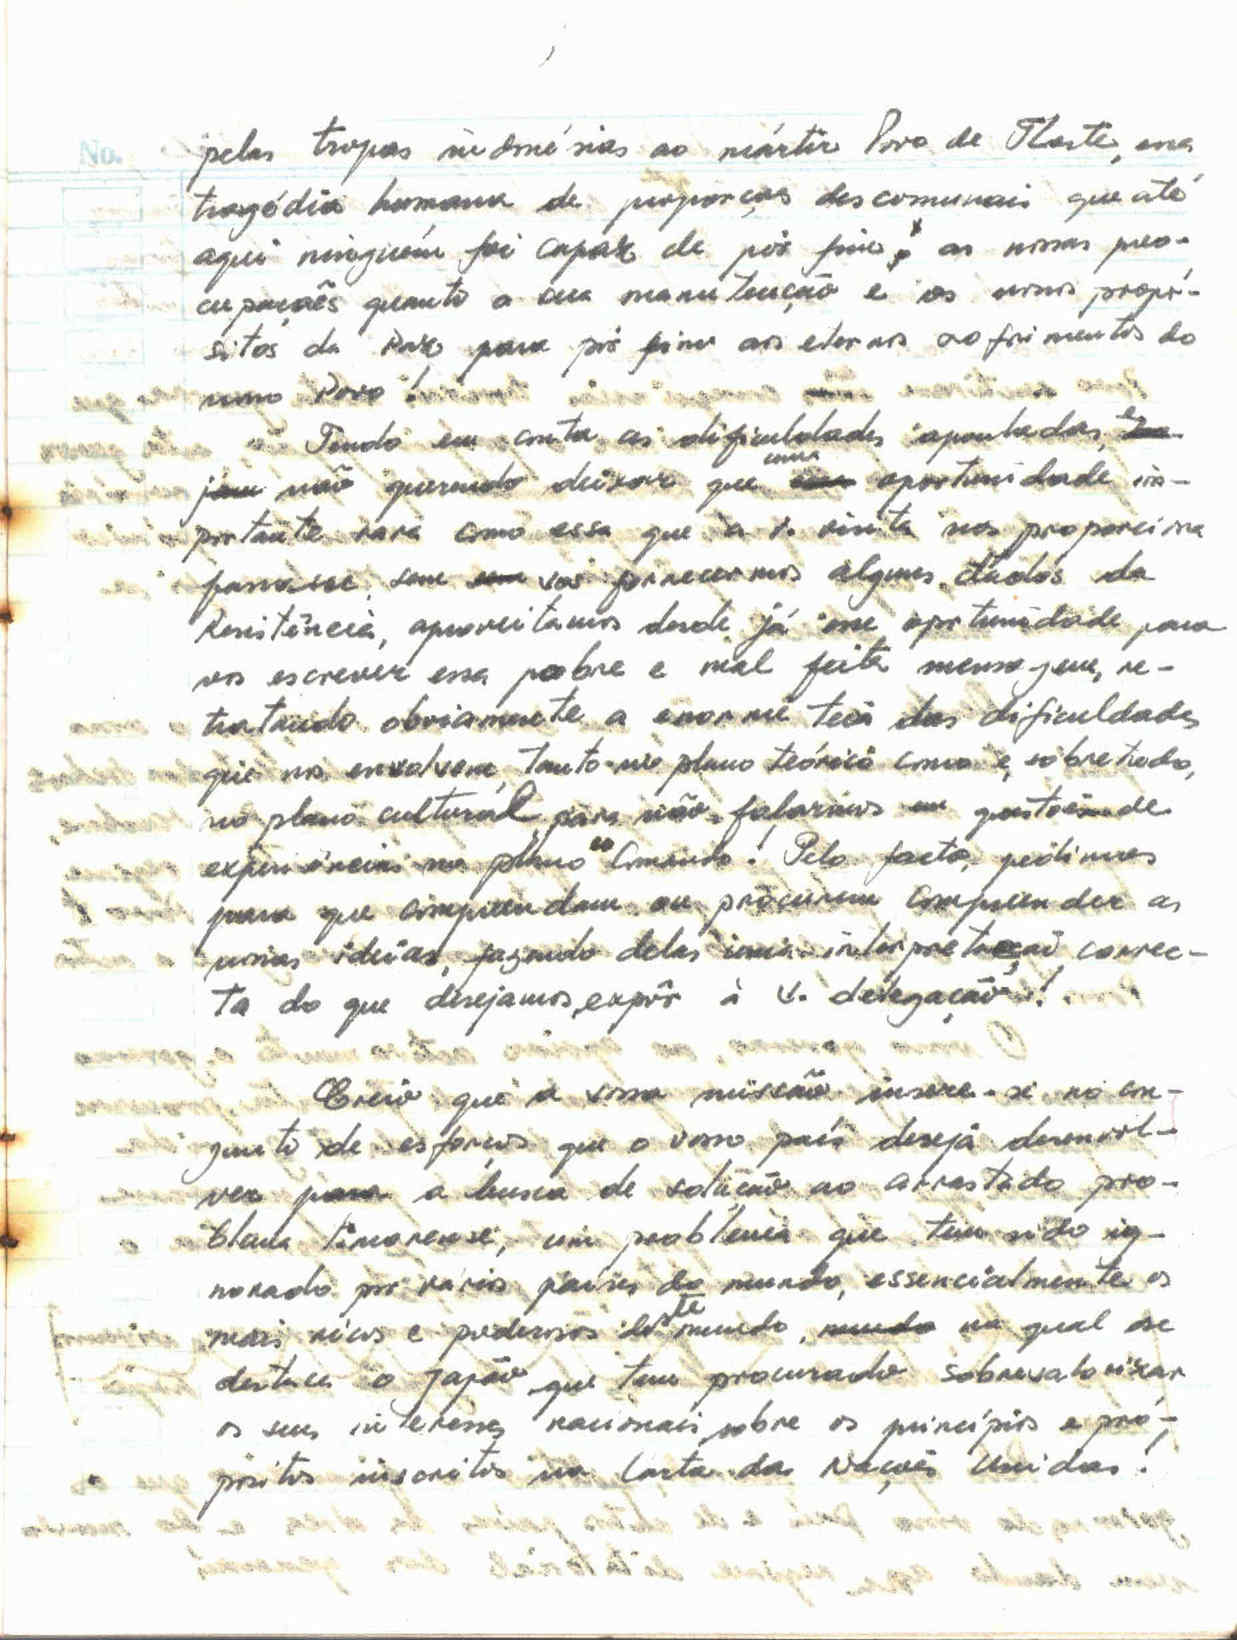 No.
pelas tropas indonésias ao mártir Povo de TLeste, essa
tragédia humana de proporções descomunais que até
aqui ninguém foi capaz de pôr fim; as nossas preo-
cupações quanto a sua manutenção e os nossos propó-
sitos da Paz, para pôr fim aos eternos sofrimentos do
nosso Povo!
Tendo em conta as dificuldades apontadas, e
não querendo deixar que uma oportunidade im-
portante rara como essa que a v. visita nos proporciona
passasse, sem vos fornecermos alguns dados da
Resistência, aproveitamos desde já esse oportunidade para
vos escrever essa pobre e mal feita mensagem, re-
tratando obviamente a enorme teia das dificuldades
que nos envolvem, tanto no plano teórico como e, sobretudo,
no plano cultural, para não falarmos em questões de
experiências no plano Comando! Pelo facto, pedimos
para que compreendam ou procurem compreender as
nossas ideias, fazendo delas uma interpretação correc-
ta do que desejamos expôr à V. delegação!
Creio que a vossa missão insere-se no con-
junto de esforços que o vosso país deseja desenvol-
ver para a busca de solução ao arrastado pro-
blema timorense, um problema que tem sido ig-
norado por vários países do mundo, essencialmente os
mais ricos e poderosos deste mundo, na qual se
destaca o Japão que tem procurado sobrevalorizar
os seus interesses nacionais sobre os princípios e pró-
pósitos inscritos na Carta das Nações Unidas!